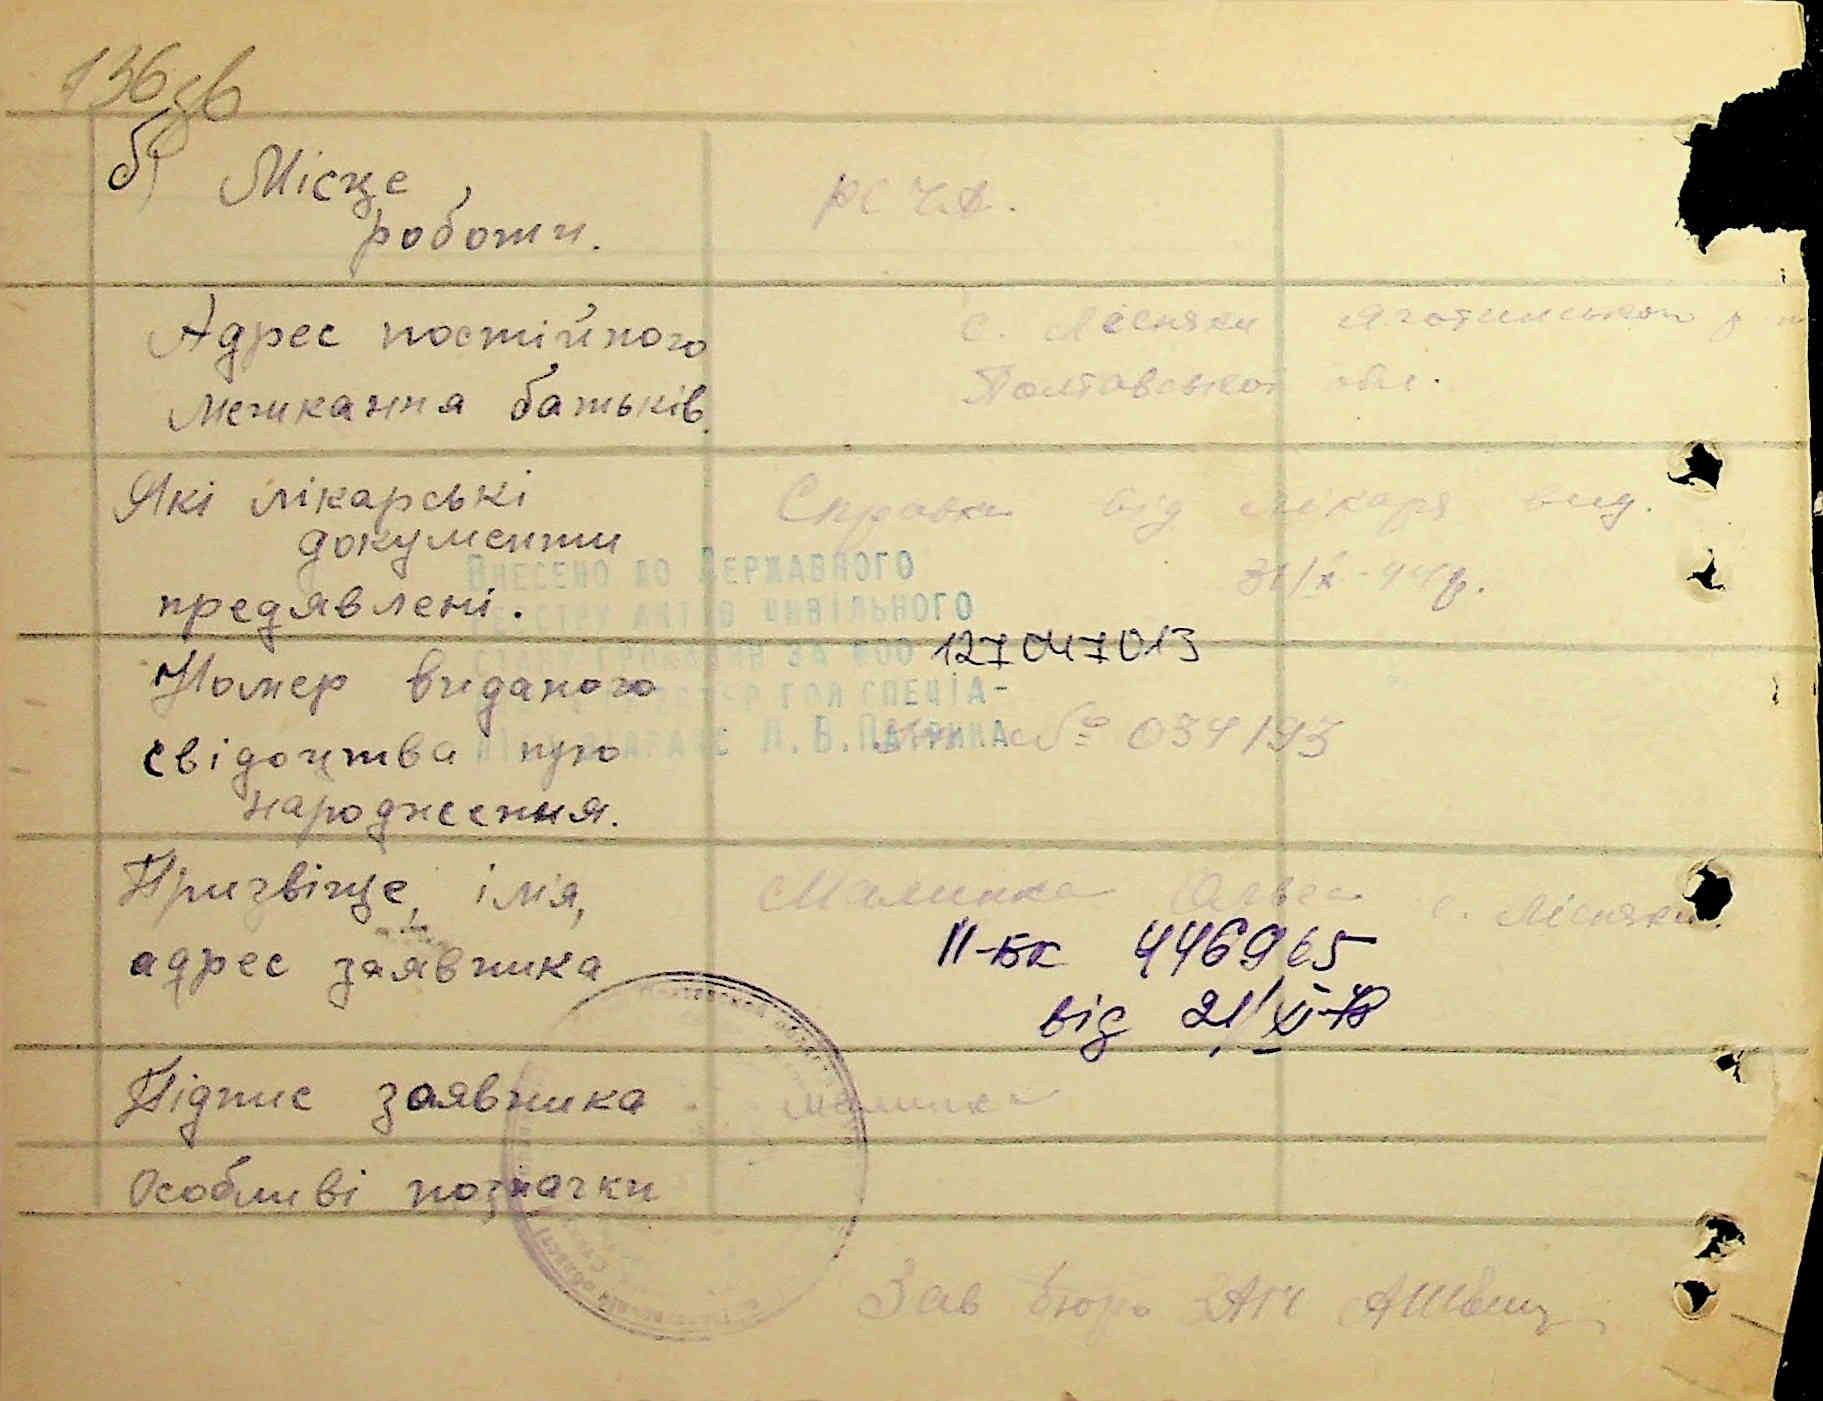 136зв
б) Місце
роботи.
РСЧА.
Адрес постійного
мешкання батьків.
с. Лісняки Яготинського р-н
Полтавської обл.
Які лікарські
документи
предявлені.
Справка від лікаря вид.
31/X-44р.
Внесено до Державного
реєстру актів цивільного
стану громадян за №00 127047013
спеціа-
Л.В.
Номер виданого
свідоцтва про
народження.
№ 034193
Призвіще, імя,
адрес заявника
Малинка Ольга с. Лісняки.
II-БК 446965
від 21/XI-78
Підпис заявника
Малинка
Особливі позначки
Зав бюро ЗАГС